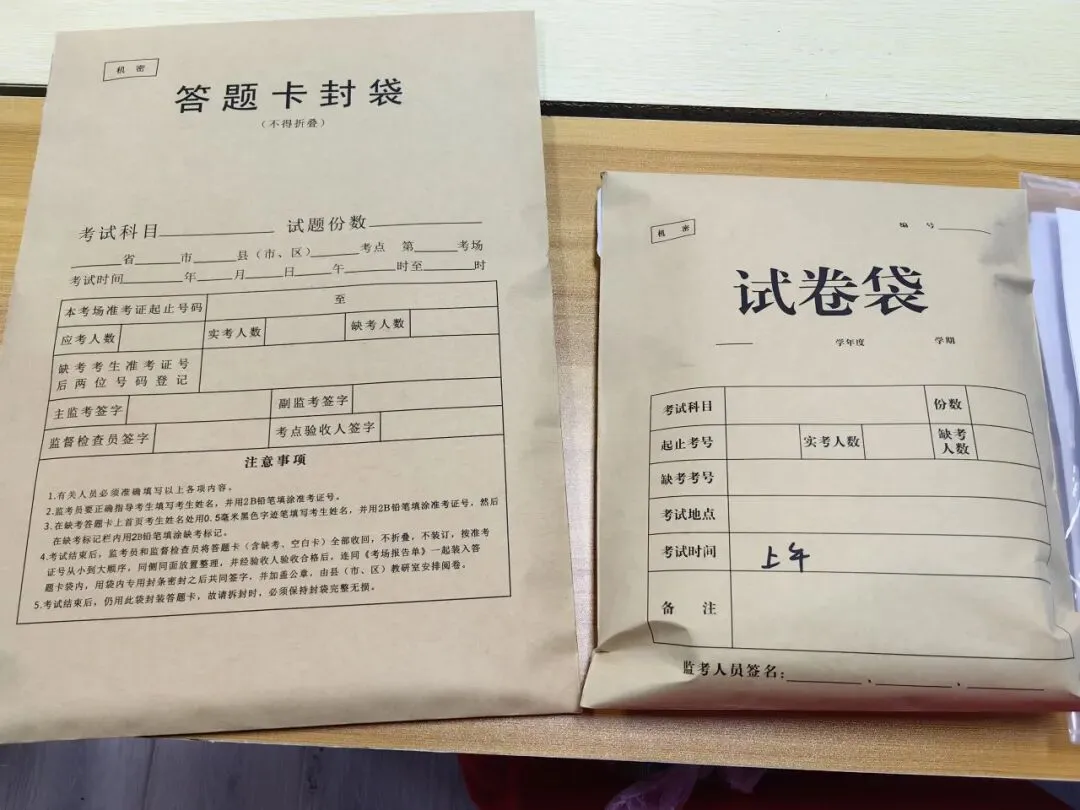 机 密
答题卡封袋
（不得折叠）
考试科目 试题份数
省 市 县（市、区） 考点 第 考场
考试时间 年 月 日 午 时至 时
本考场准考证起止号码 至
应考人数 实考人数 缺考人数
缺考考生准考证号
后两位号码登记
主监考签字 副监考签字
监督检查员签字 考点验收人签字
注意事项
1.有关人员必须准确填写以上各项内容。
2.监考员要正确指导考生填写考生姓名，并用2B铅笔填涂准考证号。
3.在缺考答题卡上首页考生姓名处用0.5毫米黑色字迹笔填写考生姓名，并用2B铅笔填涂准考证号，然后
在缺考标记栏内用2B铅笔填涂缺考标记。
4.考试结束后，监考员和监督检查员将答题卡（含缺考、空白卡）全部收回，不折叠，不装订，按准考
证号从小到大顺序，同侧同面放置整理，并经验收人验收合格后，连同《考场报告单》一起装入答
题卡袋内，用袋内专用封条密封之后共同签字，并加盖公章，由县（市、区）教研室安排阅卷。
5.考试结束后，仍用此袋封装答题卡，故请拆封时，必须保持封袋完整无损。
机 密
编 号
试卷袋
学年度 学期
考试科目 份数
起止考号 实考人数 缺考
人数
缺考考号
考试地点
考试时间 上午
备 注
监考人员签名： 、 、